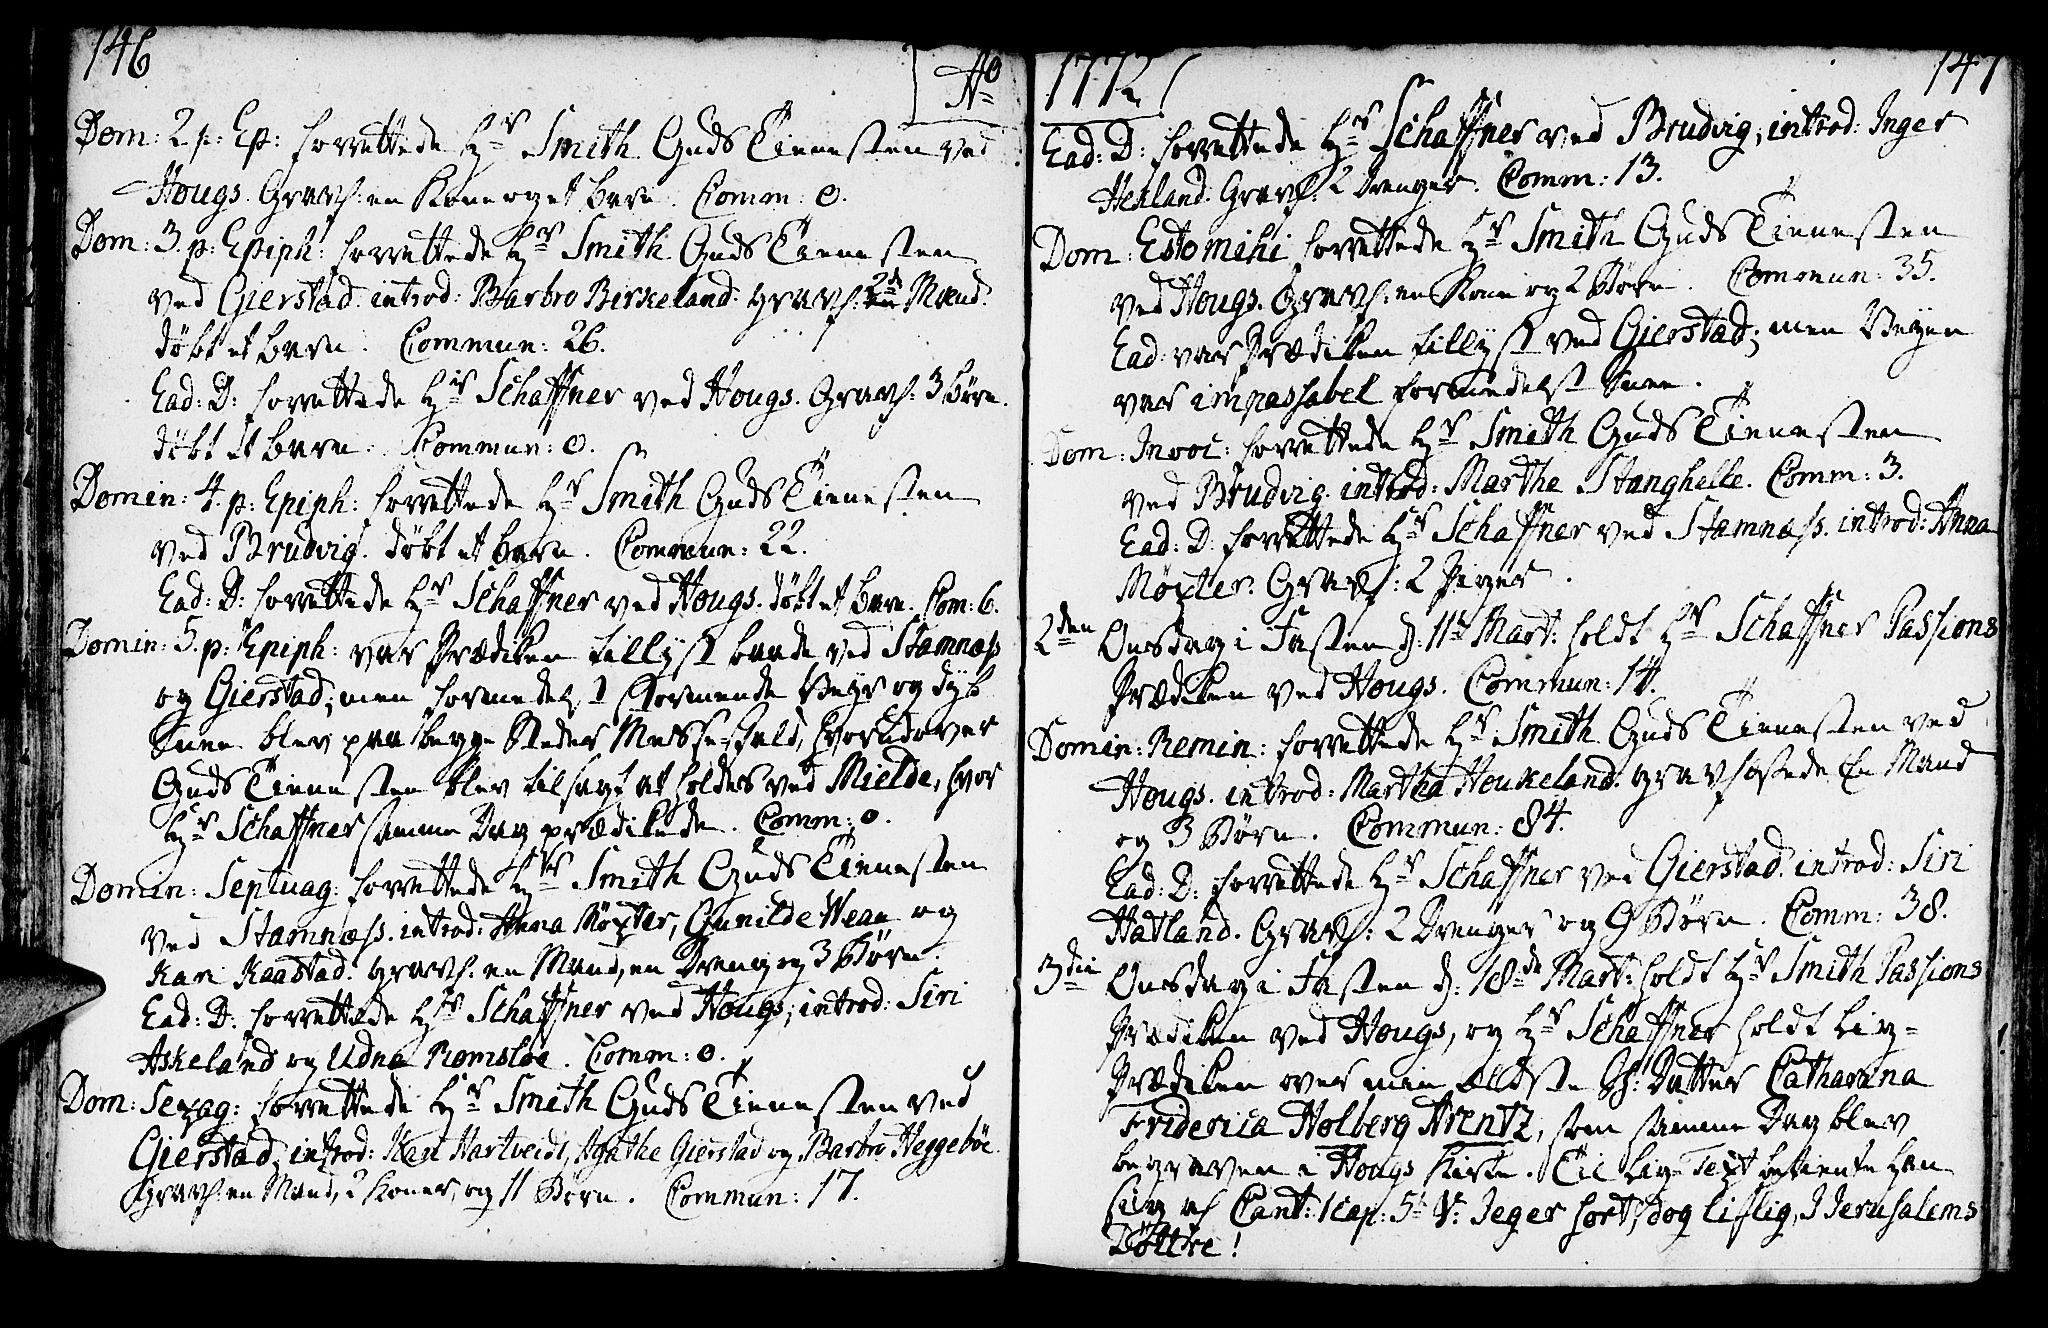 146
Ao
Dom: 2 p: Ep: forrettede Hr Smith Guds Tienesten ved
Hougs. Gravf: en Kone og et barn. Comm: 0.
Dom: 3. p: Epiph: forrettede Hr Smith Guds Tienesten
ved Gierstad. introd: Barbro Birkeland: gravf: 2de Mænd.
døbt et barn. Commun: 26.
Ead: D: forrettede Hr Schaffner ved Hougs. Gravf: 3 børn.
døbt et barn. Commun: 0.
Domin: 4. p: Epiph: forrettede Hr Smith Guds Tienesten
ved Brudvig. døbt et barn. Commun: 22.
Ead: D: forrettede Hr Schaffner ved Hougs. døbt et barn. Com: 6.
Domin: 5. p: Epiph: var Prædiken tillyst baade ved Stamnæs
og Gierstad; men formedelst stormende Veyr og dyb
Snee blev paa begge Steder Messe-Fald, hvorudover
Guds Tienesten blev tilsagt at holdes ved Mielde, hvor
Hr Schaffner samme Dag prædikede. Comm: 0.
Domin: Septuag: forrettede Hr Smith Guds Tienesten
ved Stamnæss. introd: Anna Møxter, Gunilde Wean og
Kari Kaastad. gravf: en Mand, en Dreng og 3 Børn.
Ead: D: forrettede Hr Schaffner ved Hougs; introd: Siri
Askeland og Udna Romsloe. Comm: 0.
Dom: Sexag: forrettede Hr Smith Guds Tienesten ved
Gierstad, introd: Kari Hartveidt, Agathe Gierstad og Barbro Heggebøe.
gravf: en Mand, 2 Koner, og 11 Børn. Commun: 17.
1772
147
Ead: D: forrettede Hr Schaffner ved Brudvig, introd: Inger
Hekland. Gravf: 2 Drenger. Comm: 13.
Dom: Estomihi forrettede Hr Smith Guds Tienesten
ved Hougs. Gravf: en Kone og 2 Børn. Commun: 35.
Ead: var Prædiken tillyst ved Gierstad; men Veyen
var impassabel formedelst Snee.
Dom: Invoc: forrettede Hr Smith Guds Tienesten
ved Brudvig. introd: Marthe Stanghelle. Comm: 3.
Ead: D: forrettede Hr Schaffner ved Stamnæss. introd: Anna
Møxter. Gravf: 2 Piger.
2den Onsdag i Fasten d: 11te Mart: holdt Hr Schaffner Passions
Prædiken ved Hougs. Commun: 14.
Domin: Remin: forrettede Hr Smith Guds Tienesten ved
Hougs. introd: Martha Houkeland. gravfæstede En Mand
og 3 Børn. Commun: 84.
Ead: D: forrettede Hr Schaffner ved Gierstad. introd: Siri
Hatland. Gravf: 2 Drenger og 9 Børn. Comm: 38.
3die Onsdag i Fasten d: 18de Mart: holdt Hr Smith Passions
Prædiken ved Hougs, og Hr Schaffner holdt Liig-
Prædiken over min ældste Datter Catharina
Friderica Holberg Arentz, som samme Dag blev
begraven i Hougs Kirke. Til Liig-Text betiente han
sig af Cant: 1 cap: 5t V: Jeg er sort, dog liflig, I Jerusalems
Døttre!